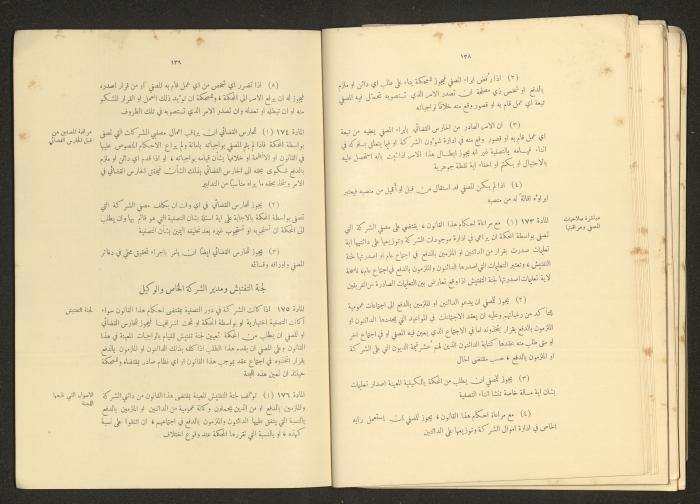 ١٣٨
(٢) اذا رُفض ابراء المصفي فيجوز للمحكمة بناء على طلب اي دائن او ملزم
بالدفع او شخص ذي مصلحة ان تصدر الامر الذي تستصوبه بتحميل فيه المصفي
تبعة اي عمل قام به او قصور وقع منه خلافاً لواجباته
(٣) ان الامر الصادر من الحارس القضائي بابراء المصفي يعفيه من تبعة
اي عمل قام به او قصور وقع منه في ادارة شؤون الشركة او فيما يتعلق بسلوكه في
اثناء قيامه بالتصفية غير انه يجوز ابطال هذا الامر اذا ثبت بانه استحصل عليه
بالاحتيال او بكتم او اخفاء اية نقطة جوهرية
(٤) اذا لم يكن المصفي قد استقال من قبل او أقيل من منصبه فيعتبر
ابراؤه اقالة له من منصبه
مباشرة صلاحيات
المصفي ومراقبتها
المادة ١٧٣ (١) مع مراعاة احكام هذا القانون ، يقتضي على مصفي الشركة التي
تصفى بواسطة المحكمة ان يراعي في ادارة موجودات الشركة وتوزيعها على دائنيها اية
تعليمات صدرت بقرار من الدائنين او الملزمين بالدفع في اجتماع عام او اصدرتها لجنة
التفتيش ، وتعتبر التعليمات التي اصدرها الدائنون والملزمون بالدفع في اجتماع عام ، ناسخة
لاية تعليمات اصدرتها لجنة التفتيش اذا وقع تعارض بين التعليمات الصادرة من الفريقين
(٢) يجوز للمصفي ان يدعو الدائنين او الملزمين بالدفع الى اجتماعات عمومية
ليتأكد من رغباتهم وعليه ان يعقد الاجتماعات في المواعيد التي يحددها الدائنون او
الملزمون بالدفع بقرار يتخذونه اما في الاجتماع الذي يعين فيه المصفي او في اجتماع آخر
او متى طلب منه عقدها كتابة الدائنون الذين لهم عُشر قيمة الديون التي على الشركة
او الملزمون بالدفع ، حسب مقتضى الحال
(٣) يجوز للمصفي ان يطلب من المحكمة بالكيفية المعينة اصدار تعليمات
بشان اية مسالة خاصة تنشا اثناء التصفية
(٤) مع مراعاة احكام هذا القانون ، يجوز للمصفي ان يستعمل رايه
الخاص في ادارة اموال الشركة وتوزيعها على الدائنين
١٣٩
(٥) اذا تضرر اي شخص من اي عمل قام به المصفي او من قرار اصدره
فيجوز له ان يرفع الامر الى المحكمة ، وللمحكمة ان تؤيد ذلك العمل او القرار المشكو
منه او ان تبطله او تعدله وان تصدر الامر الذي تستصوبه في تلك الظروف
مراقبة المصفين من
قبل الحارس القضائي
المادة ١٧٤ (١) للحارس القضائي ان يراقب اعمال مصفي الشركات التي تصفى
بواسطة المحكمة فاذا لم يقم المصفي بواجباته بامانة ولم يراع الاحكام المنصوص عليها
في القانون او الانظمة او خلافها بشأن قيامه بواجباته ، او اذا قدم اي دائن او ملزم
بالدفع شكوى بحقه الى الحارس القضائي بذلك الشأن فيحقق الحارس القضائي في
الامر ويتخذ بحقه ما يراه مناسباً من التدابير
(٢) يجوز للحارس القضائي في اي وقت ان يكلف مصفي الشركة التي
تصفى بواسطة المحكمة بالاجابة على اية اسئلة بشان التصفية التي هو قائم بها وان يطلب
الى المحكمة ان تستجوبه او تستجوب غيره بعد تحليفه اليمين بشان التصفية
(٣) يجوز للحارس القضائي ايضاً ان يامر باجراء تحقيق محلي في دفاتر
المصفي واوراقه وقسائمه
لجنة التفتيش ومدير الشركة الخاص والوكيل
لجنة التفتيش
المادة ١٧٥ اذا كانت الشركة في دور التصفية بمقتضى احكام هذا القانون سواء
أكانت التصفية اختيارية او بواسطة المحكمة او تحت اشرافها فيجوز للحارس القضائي
او للمصفي ان يطلب من المحكمة تعيين لجنة تفتيش للقيام بالواجبات المعينة في هذا
القانون وعلى المصفي ان يقدم هذا الطلب اذا كلفه بذلك الدائنون او الملزمون بالدفع
بقرار اتخذوه في اجتماع عقد بموجب هذا القانون او اي نظام صادر بمقتضاه وللمحكمة
حينئذ ان تعين هذه اللجنة
الاصول التي تتبعها
اللجنة
المادة ١٧٦ (١) تؤلف لجنة التفتيش المعينة بمقتضى هذا القانون من دائني الشركة
والملزمين بالدفع او من الذين يحملون وكالة عمومية من الدائنين او الملزمين بالدفع
بالنسبة التي يتفق عليها الدائنون والملزمون بالدفع في اجتماعهم ، ان اتفقوا على نسبة
كهذه ، او بالنسبة التي تقررها المحكمة عند وقوع اختلاف